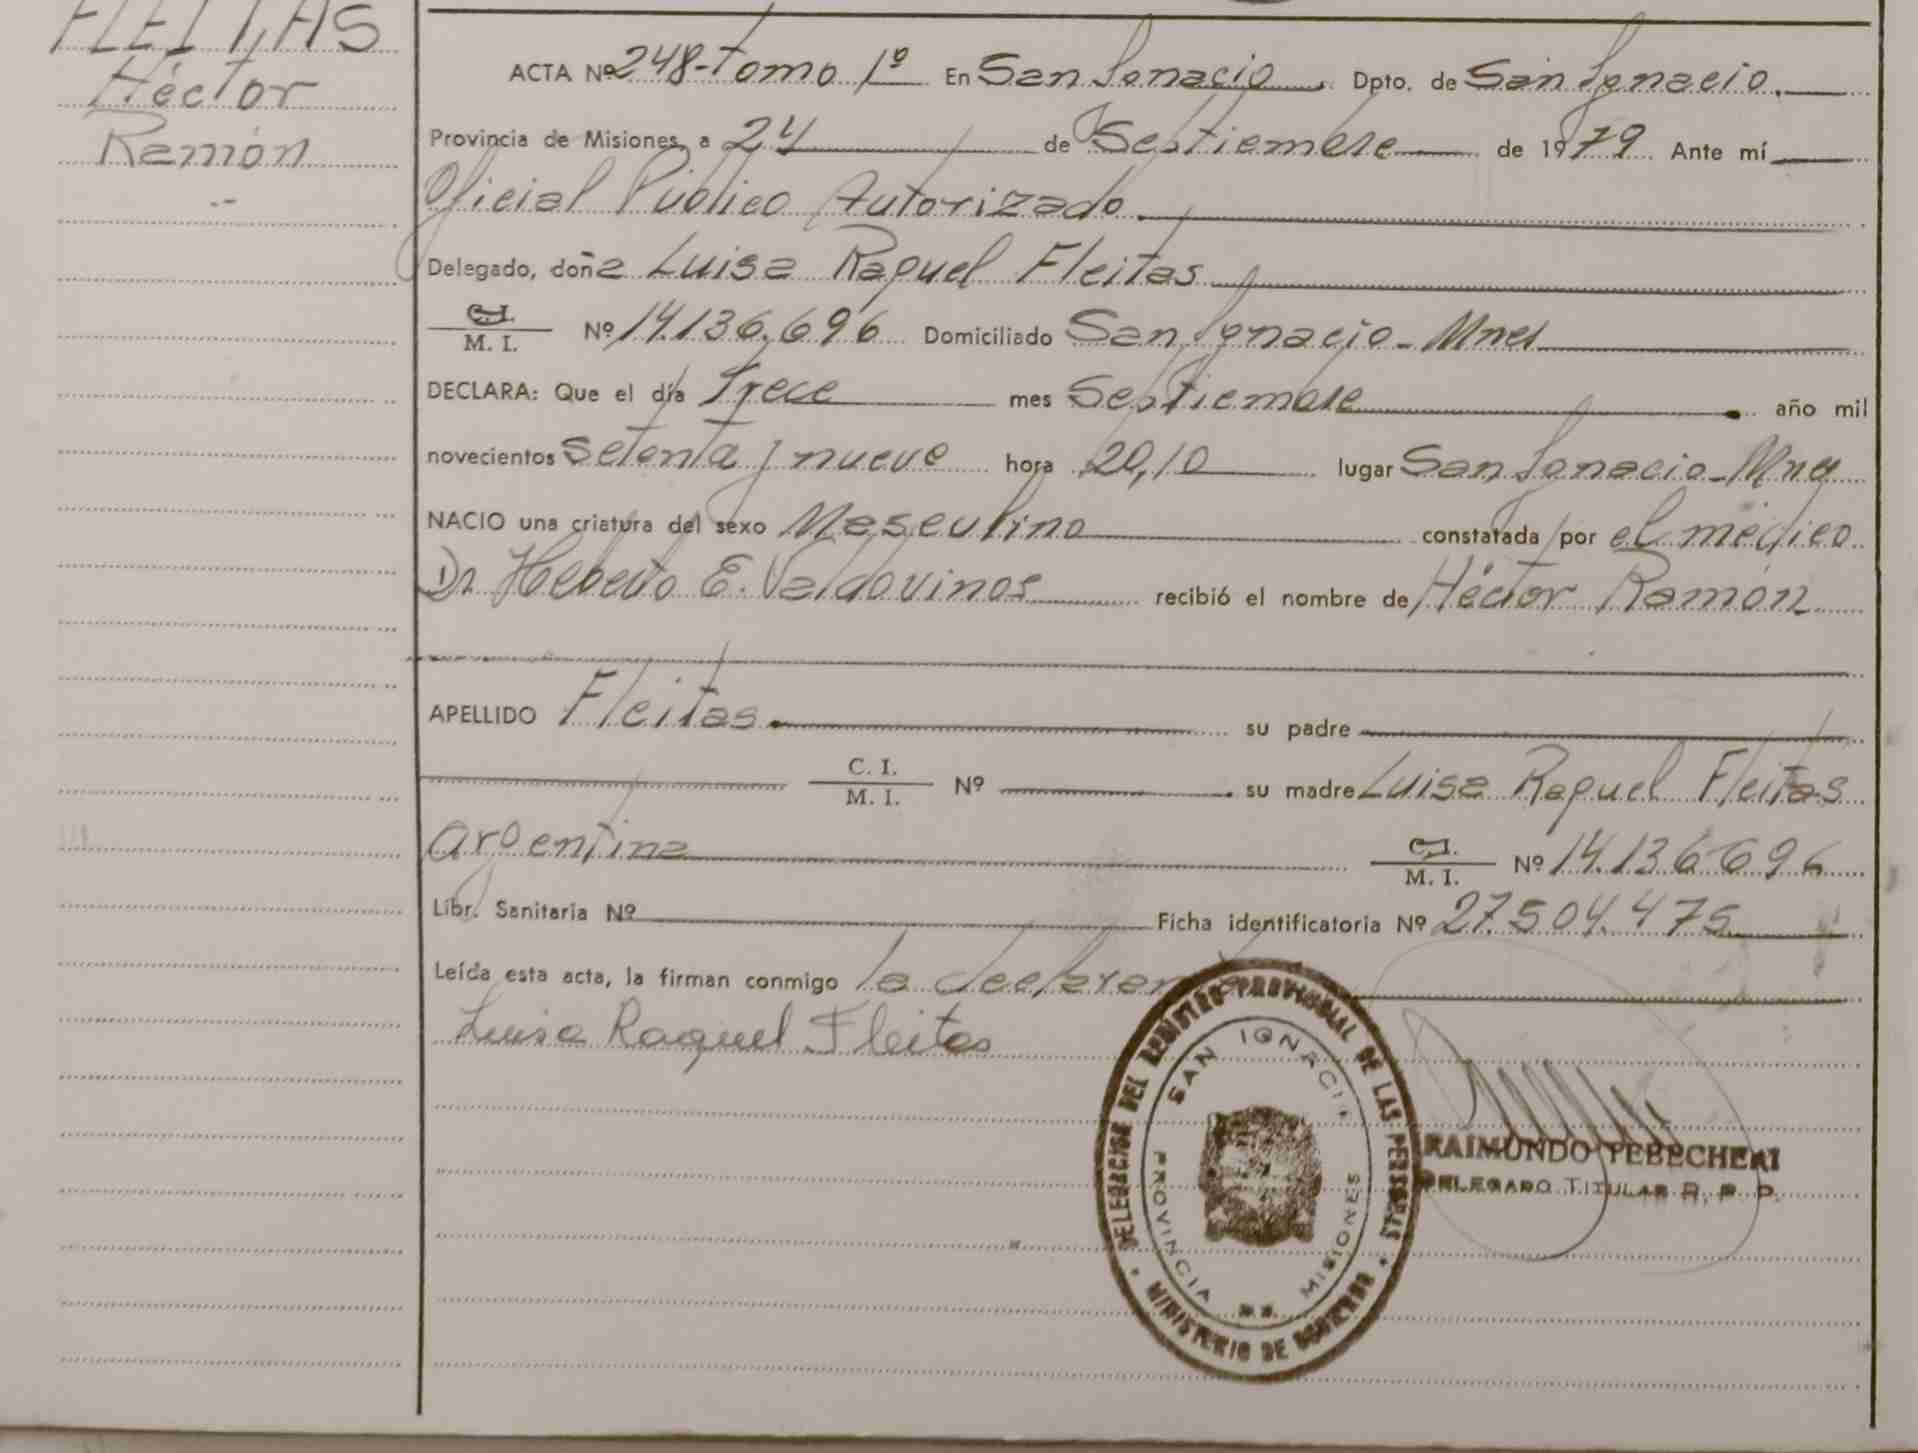 FLEITAS
Héctor
Ramón
ACTA Nº 248-Tomo 1º En San Ignacio Dpto. de San Ignacio.
Provincia de Misiones, a 24 de Septiembre de 1979. Ante mí
Oficial Público Autorizado
Delegado, doña Luisa Raquel Fleitas
C.I.
M. I. Nº 14.136.696 Domiciliado San Ignacio - Mnes
DECLARA: Que el día Trece mes Septiembre año mil
novecientos setenta y nueve hora 20,10 lugar San Ignacio - Mnes
NACIO una criatura del sexo Masculino constatada por el médico
Dr. Heberto E. Valdovinos recibió el nombre de Héctor Ramón
APELLIDO Fleitas su padre
C. I.
M. I. Nº su madre Luisa Raquel Fleitas
argentina C.I.
M. I. Nº 14.136.696
Libr. Sanitaria Nº Ficha identificatoria Nº 27.504.475
Leída esta acta, la firman conmigo la declarante
Luisa Raquel Fleitas
DELEGACION DEL REGISTRO PROVINCIAL DE LAS PERSONAS
SAN IGNACIO
PROVINCIA DE MISIONES
MINISTERIO DE GOBIERNO
RAIMUNDO
DELEGADO TITULAR R. P. P.